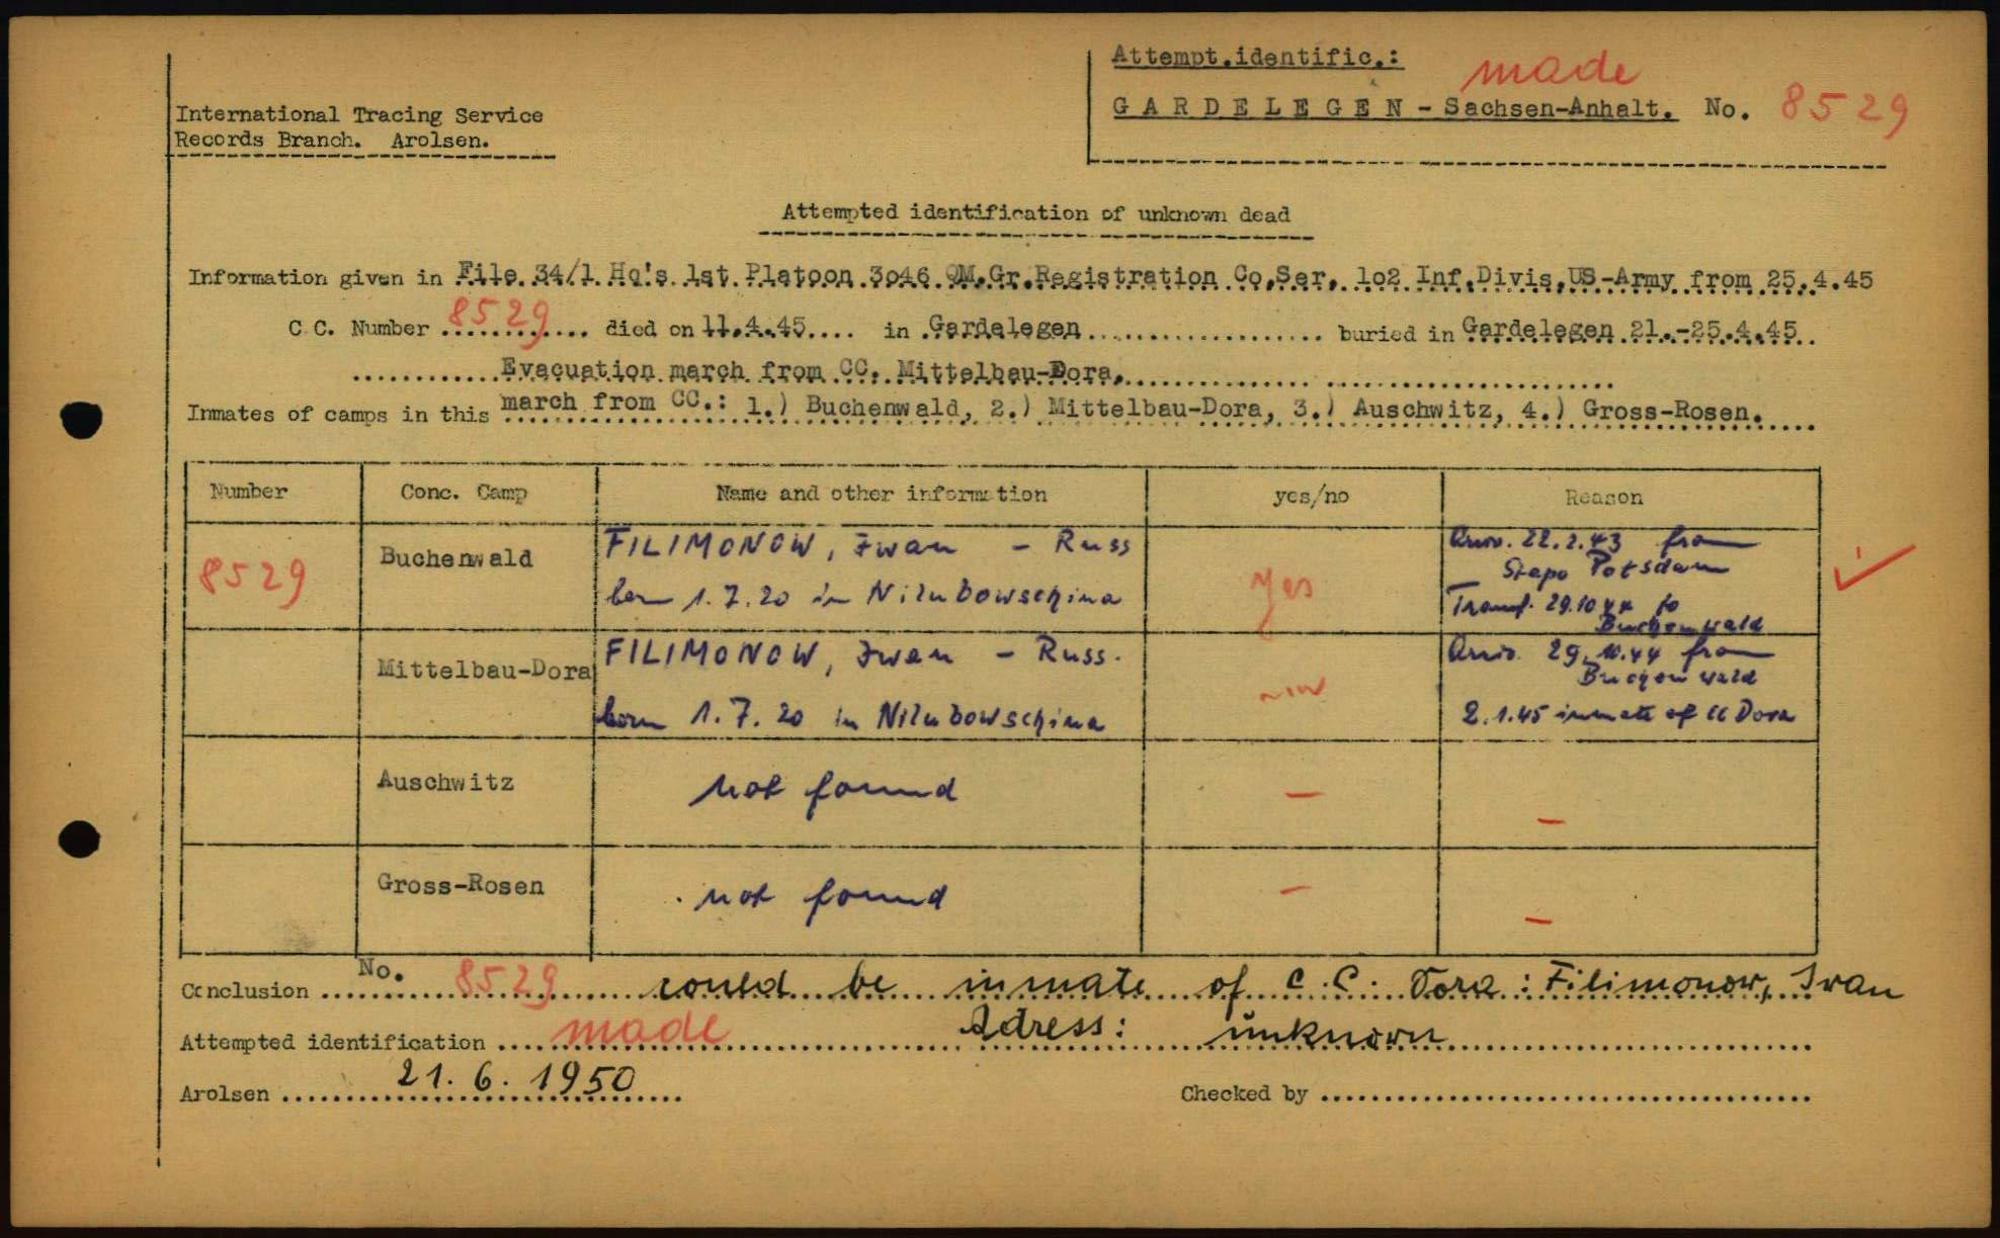 Attempt.identific.: made
GARDELEGEN - Sachsen-Anhalt. No. 8529
International Tracing Service
Records Branch. Arolsen.
Attempted identification of unknown dead
Information given in File 34/1 Hq's 1st Platoon 3o46 QM.Gr.Registration Co,Ser, 1o2 Inf.Divis,US-Army from 25.4.45
C C. Number 8529 died on 11.4.45 in Gardelegen buried in Gardelegen 21.-25.4.45
Evacuation march from CC. Mittelbau-Dora,
Inmates of camps in this march from CC.: 1.) Buchenwald, 2.) Mittelbau-Dora, 3.) Auschwitz, 4.) Gross-Rosen.
Number Conc. Camp Name and other information yes/no Reason
8529 Buchenwald FILIMONOW, Iwan - Russ yes Arriv. 22.2.43 from
Stapo Potsdam
born 1.7.20 in Nilubowschina Transf. 29.10 44 to
Buchenwald
Mittelbau-Dora FILIMONOW, Iwan - Russ. Arriv. 29.10.44 from
Buchenwald
born 1.7.20 in Nilubowschina 2.1.45 inmate of CC Dora
Auschwitz not found - -
Gross-Rosen not found - -
Conclusion No. 8529 could be inmate of C.C. Dora: Filimonow, Iwan
Attempted identification made Adress: unknown
Arolsen 21. 6. 1950 Checked by